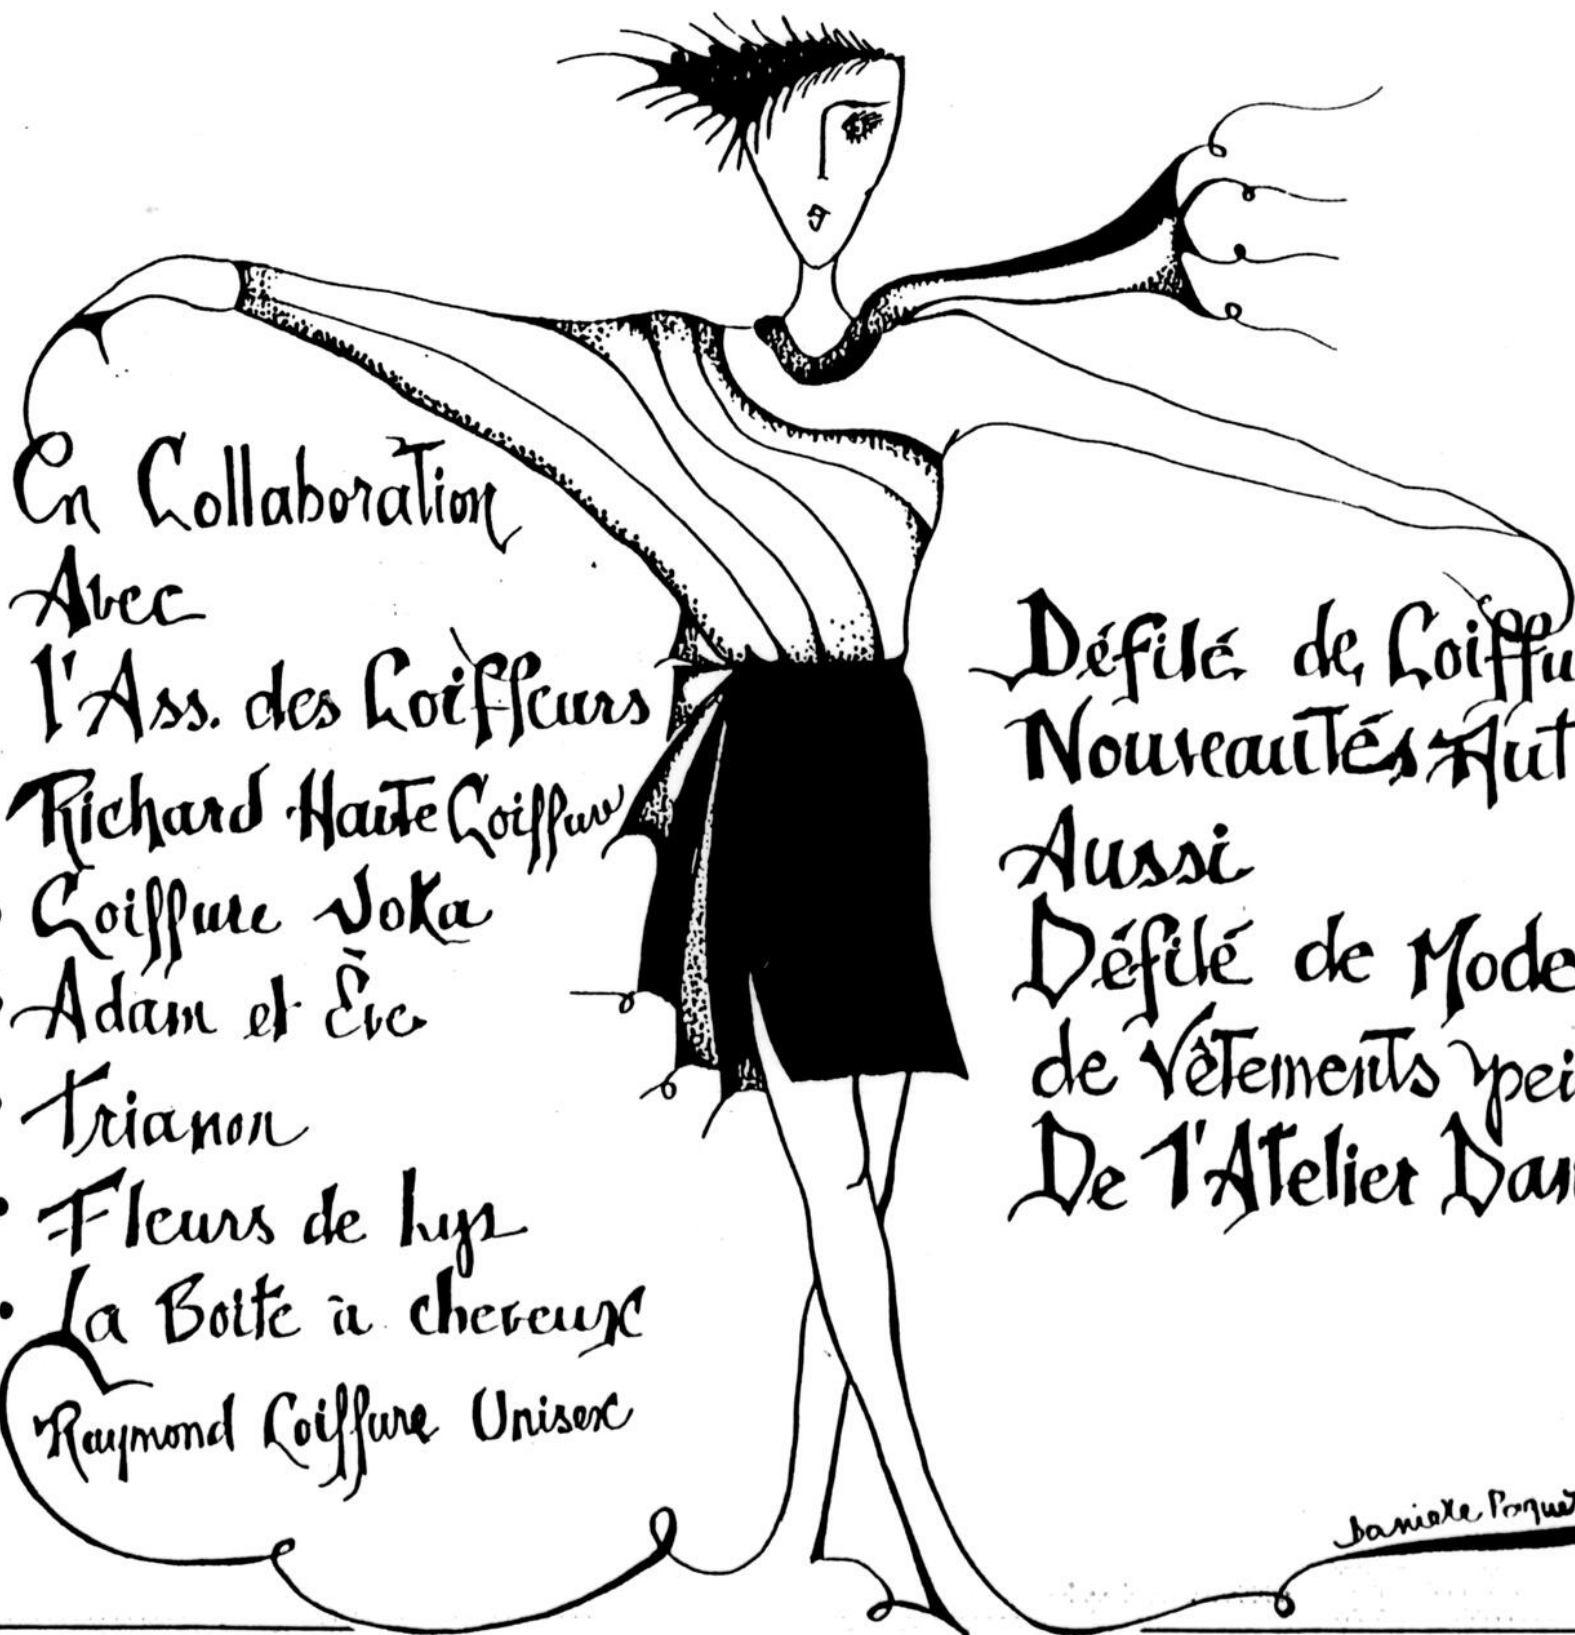 En Collaboration
Avec
l'Ass. des Coiffeurs
Richard Haute Coiffure
Coiffure Joka
• Adam et Ève
• Trianon
• Fleurs de Lys
• La Boite à cheveux
Raymond Coiffure Unisex
Défilé de Coiffu
Nouveautés Aut
Aussi
Défilé de Mode
de Vêtements pei
De l'Atelier Dan
Danièle Paquet